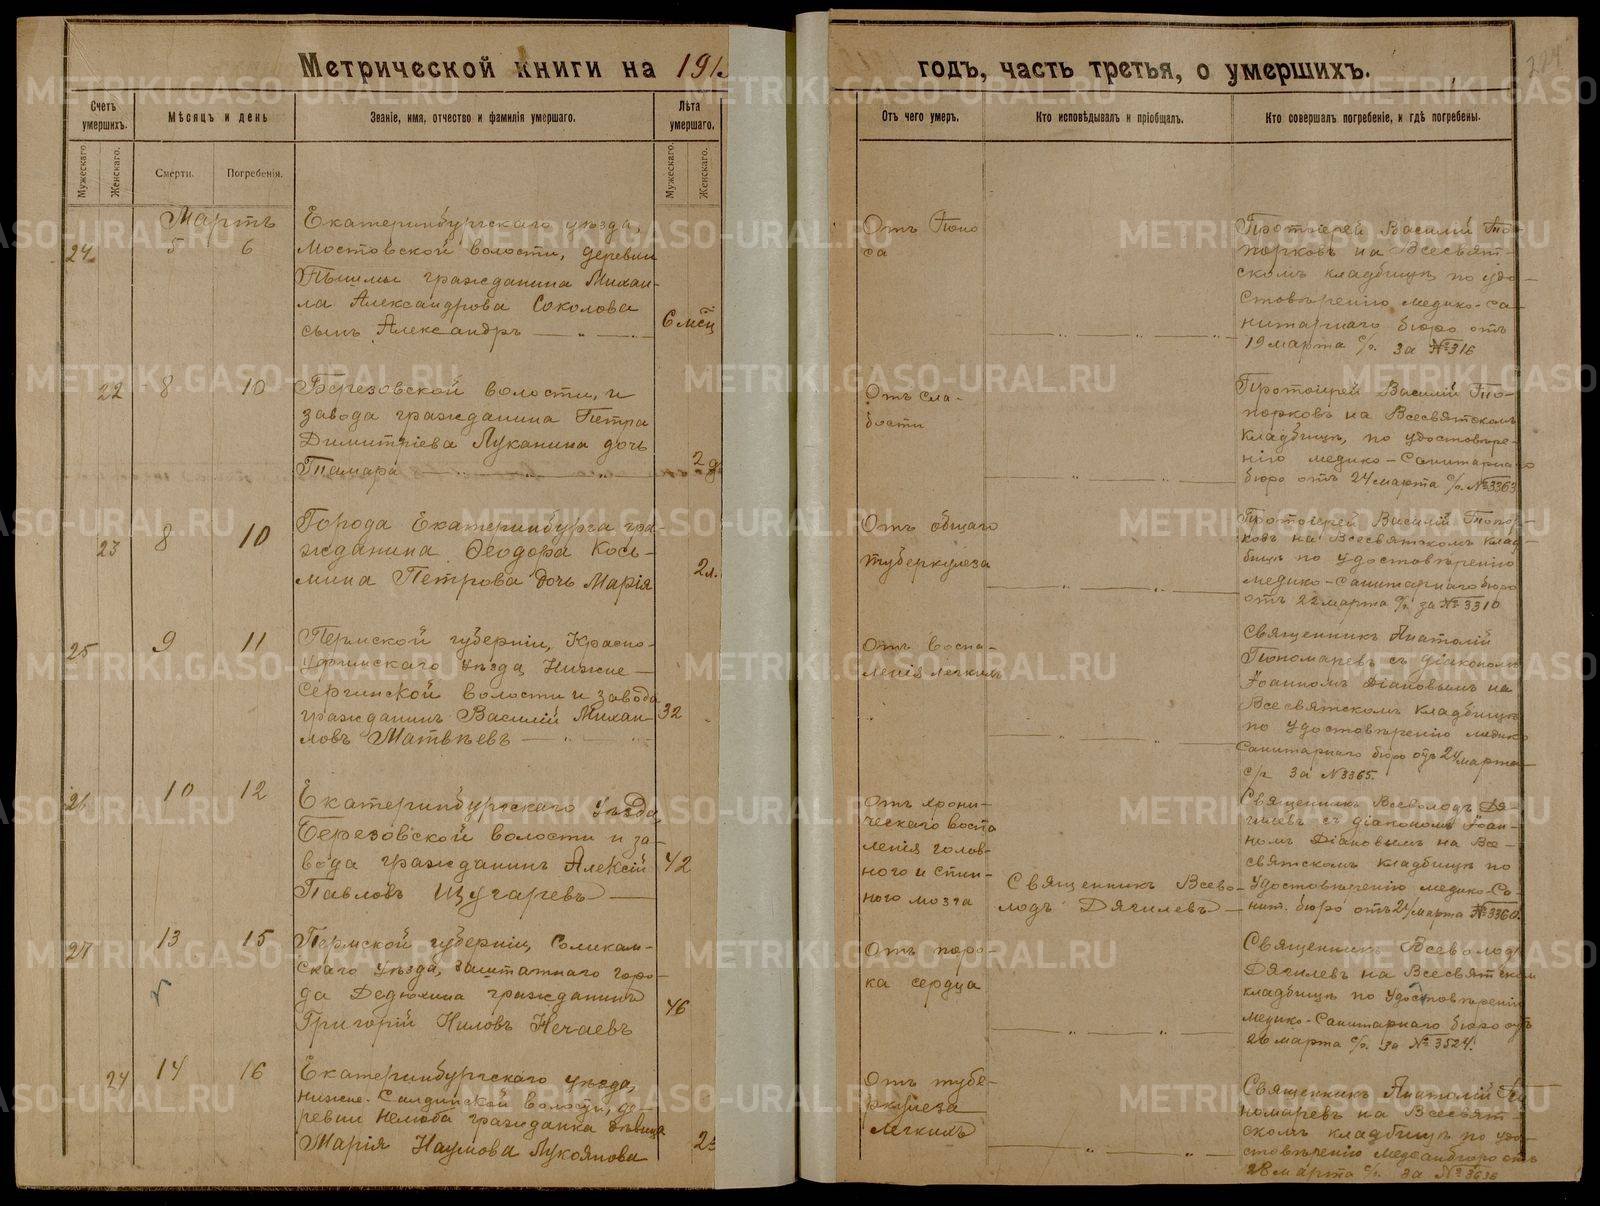 Метрической книги на 191
годъ, часть третья, о умершихъ.
Счетъ умершихъ.
Мѣсяцъ и день
Званіе, имя, отчество и фамилія умершаго.
Лѣта умершаго.
Отъ чего умеръ.
Кто исповѣдывалъ и пріобщалъ.
Кто совершалъ погребеніе, и гдѣ погребены.
Мужескаго.
Женскаго.
Смерти.
Погребенія.
Мужескаго.
Женскаго.
Мартъ
24
5
6
Екатеринбургскаго уѣзда,
Мостовской волости, деревни
Пышмы гражданина Михаи-
ла Александрова Соколова
сынъ Александръ
6 мсц
Отъ Поно
са
Протоіерей Василій То-
порковъ на Всесвят-
скомъ кладбищѣ по удо-
стовѣренію медико-са-
нитарнаго бюро отъ
19 марта с/г. за №316
22
8
10
Березовской волости, и
завода гражданина Петра
Димитріева Луканина дочь
Тамара
2 д.
Отъ сла-
бости
Протоіерей Василій То-
порковъ на Всесвятскомъ
кладбищѣ, по удостовѣре-
нію медико-Санитарнаго
бюро отъ 24 марта с/г. №3363
23
8
10
Города Екатеринбурга гра-
жданина Ѳеодора Кось-
мина Петрова дочь Марія
2 л.
Отъ общаго
туберкулеза
Протоіерей Василій Топор-
ковъ на Всесвятскомъ клад-
бищѣ по удостовѣренію
медико-санитарнаго бюро
отъ 22 марта с/г. за №3310
25
9
11
Пермской губерніи, Красно-
уфимскаго уѣзда Нижне-
Сергинской волости и завода
гражданинъ Василій Михаи-
ловъ Матвѣевъ
32
Отъ воспа-
ленія легкихъ
Священникъ Анатолій
Пономаревъ съ діакономъ
Іоанномъ Діановымъ на
Всесвятскомъ кладбищѣ
по удостовѣренію медико
Санитарнаго бюро отъ 24 марта
с/г за №3365.
26
10
12
Екатеринбургскаго уѣзда,
Березовской волости и за-
вода гражданинъ Алексій
Павловъ Щугаревъ
42
Отъ хрони-
ческаго воспа
ленія голов-
ного и спин-
ного мозга
Священникъ Всево-
лодъ Дягилевъ
Священникъ Всеволодъ Дя-
гилевъ съ діакономъ Іоан-
номъ Діановымъ на Все-
святскомъ кладбищѣ по
удостовѣренію медико-Са-
нит. бюро отъ 24 марта №3360.
27
13
15
Пермской губерніи, Соликам-
скаго уѣзда, заштатнаго горо-
да Дедюхина гражданинъ
Григорій Ниловъ Нечаевъ
46
Отъ поро-
ка сердца
Священникъ Всеволодъ
Дягилевъ на Всесвятском
кладбищѣ по удостовѣренію
медико-Санитарнаго бюро отъ
26 марта с/г. за №3524.
24
14
16
Екатеринбургскаго уѣзда,
Нижне-Салдинской волости, де-
ревни Нелоба гражданка дѣвица
Марія Наумова Лукоянова
23
Отъ тубе-
ркулеза
легкихъ
Священникъ Анатолій По
номаревъ на Всесвят
скомъ кладбищѣ по удо-
стовѣренію медсанбюро отъ
28 марта с/г. за №3636